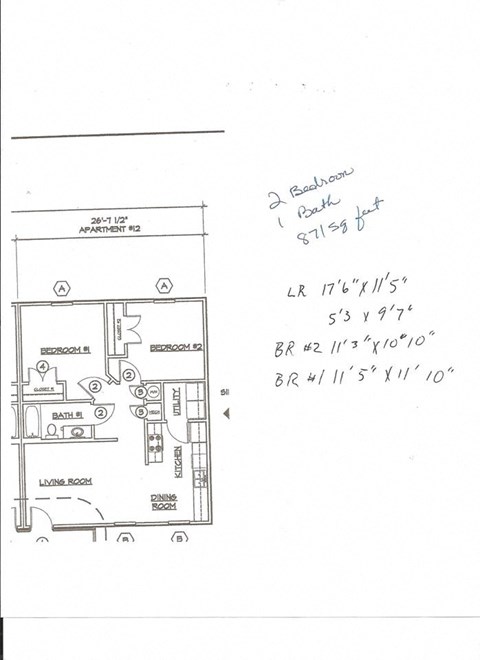 2 Bedroom
1 Bath
871 sq feet
26'-7 1/2"
APARTMENT #12
A
A
LR 17'6" X 11'5"
5'3 x 9'7"
BR #2 11'3" X 10'10"
BR #1 11'5" X 11'10"
CLOSET 2
BEDROOM #1
BEDROOM #2
4
2
2
3
CLOSET #1
UTILITY
BATH #1
2
3
KITCHEN
LIVING ROOM
DINING
ROOM
B
B